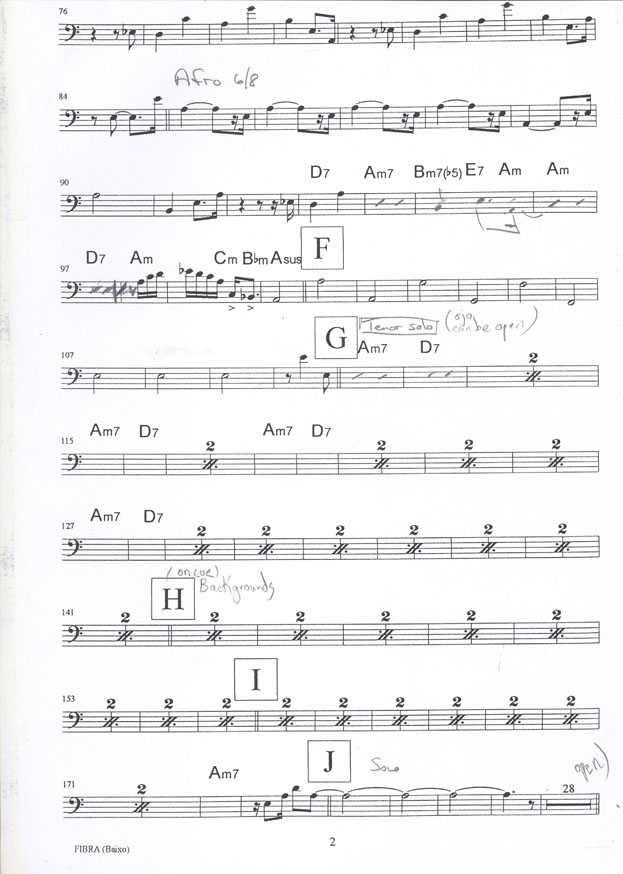 76
84 Afro 6/8
D7 Am7 Bm7(♭5) E7 Am Am
90
D7 Am Cm B♭m Asus F
97
G Tenor solo (solo can be open)
Am7 D7
107 2
Am7 D7 Am7 D7
115 2 2 2 2
Am7 D7
127 2 2 2 2 2 2
(on cue)
H Backgrounds
141 2 2 2 2 2 2
I
153 2 2 2 2 2 2 2 2
Am7 J Solo open)
171 2 28
FIBRA (Baixo) 2